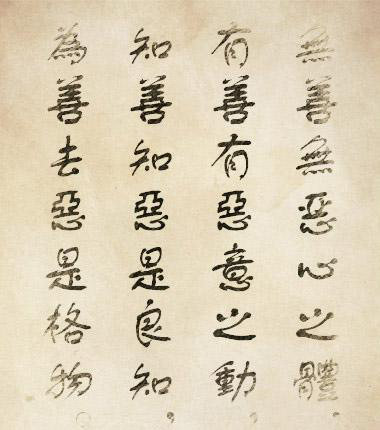 無善無惡心之體，
有善有惡意之動，
知善知惡是良知，
為善去惡是格物。